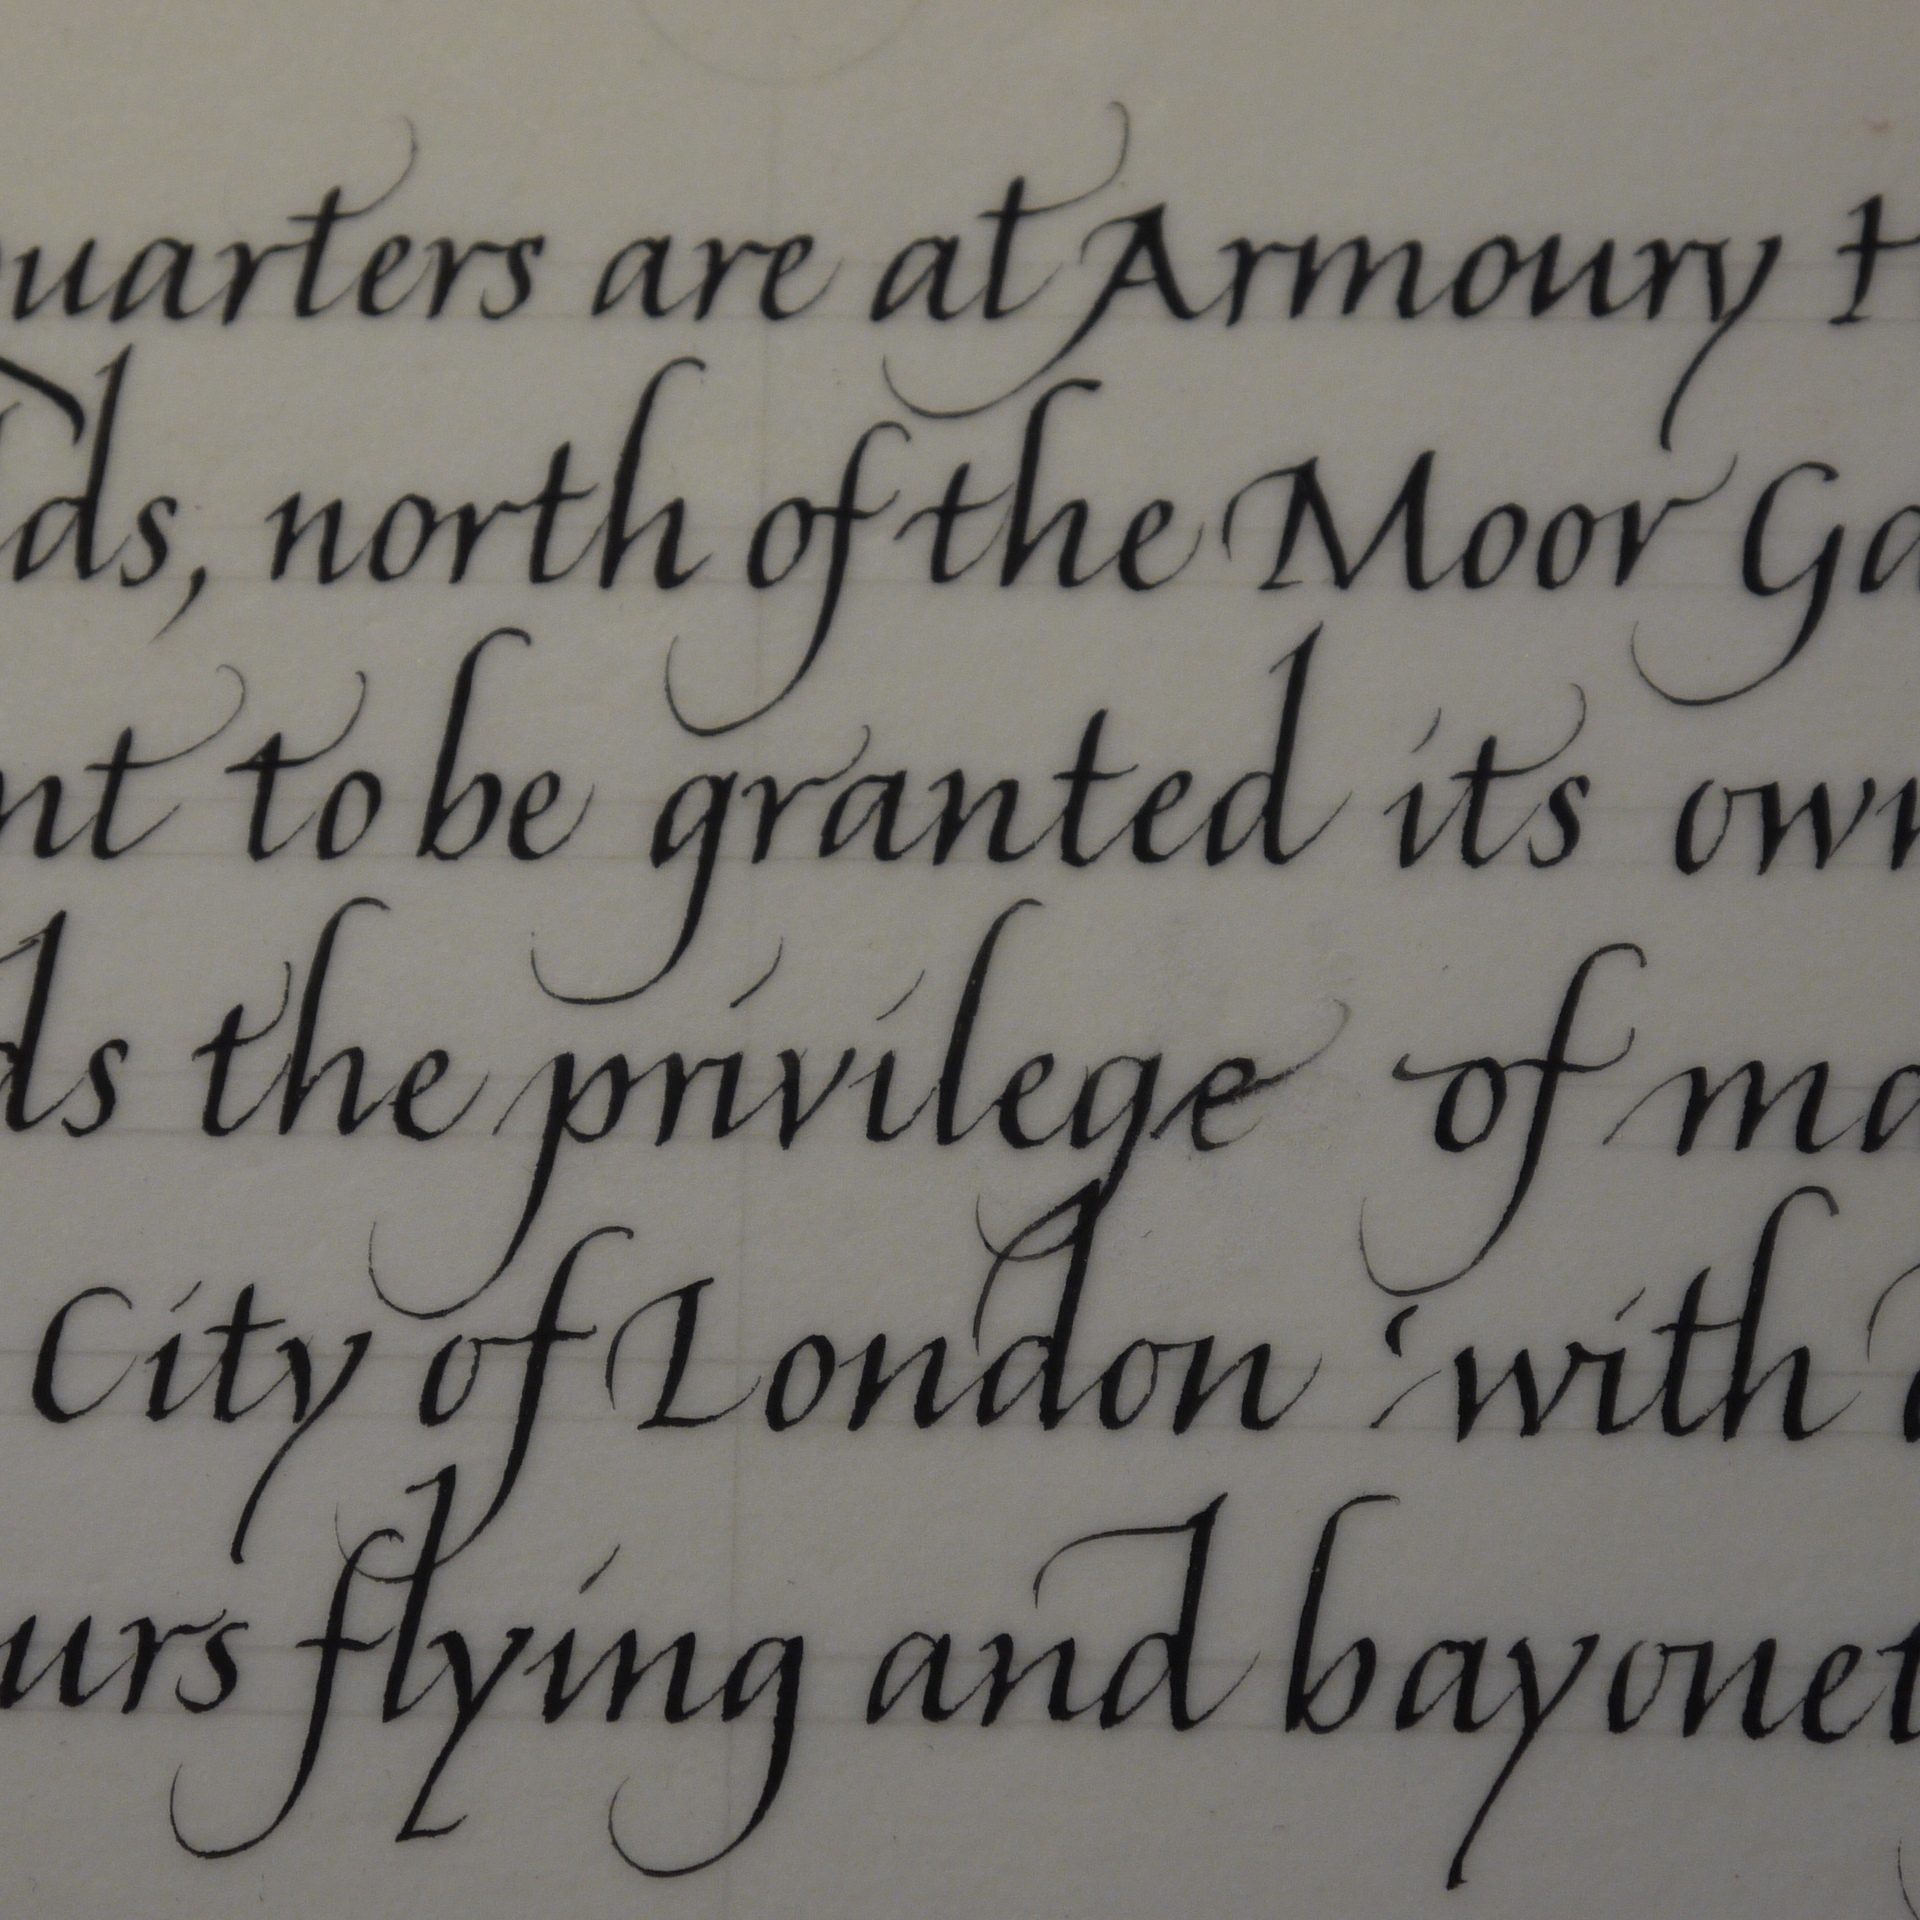 quarters are at Armoury H
ds, north of the Moor Ga
nt to be granted its own
ds the privilege of ma
City of London 'with d
urs flying and bayonet